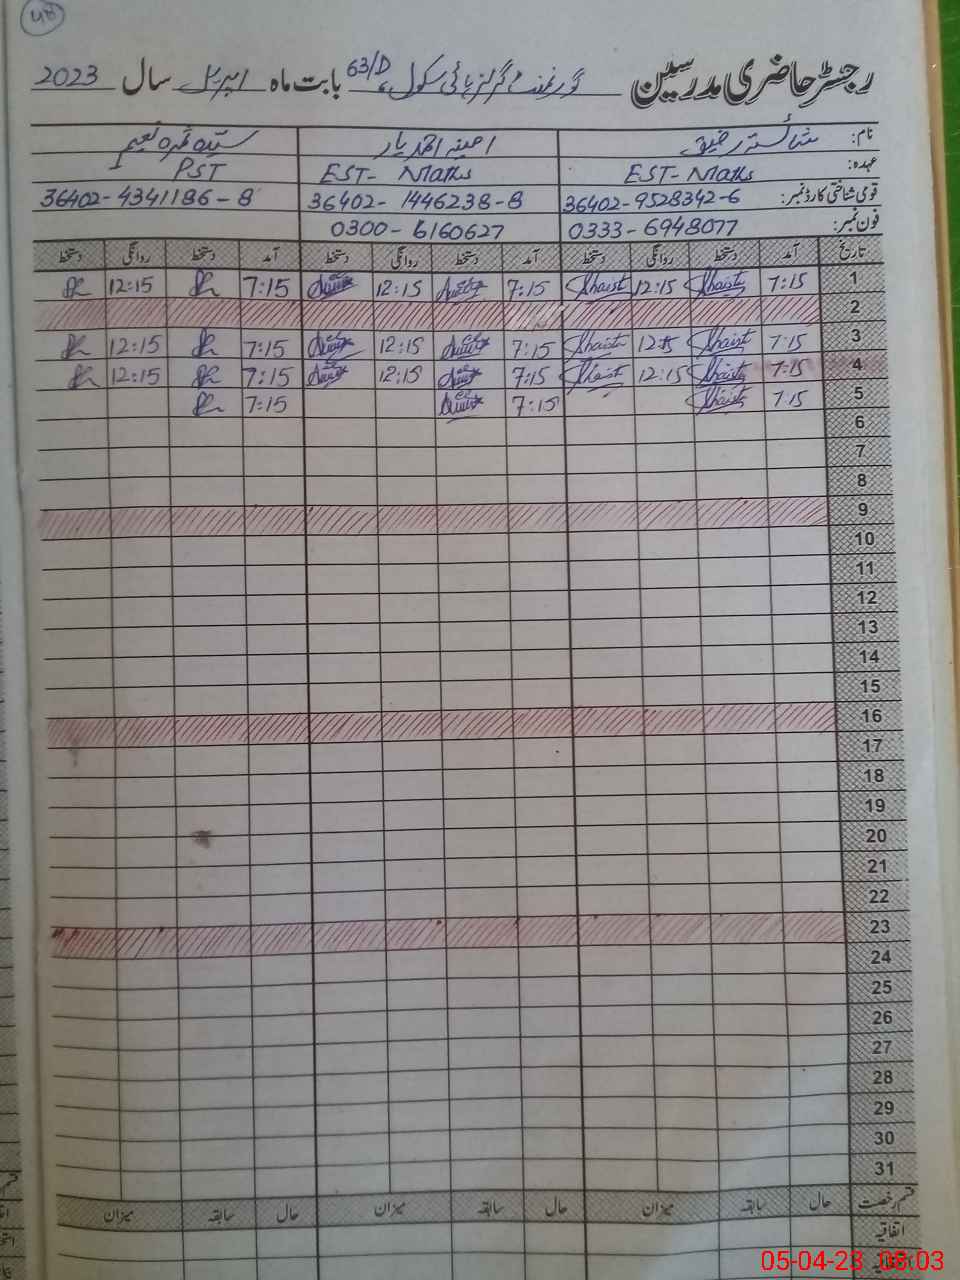 48
رجسٹر حاضری مدرسین گورنمنٹ گرلز ہائی سکول 63/D بابت ماہ اپریل سال 2023
نام: شائستہ رفیق امینہ احمد یار سیدہ ثمرہ نعیم
عہدہ: EST- Maths EST- Maths PST
قومی شناختی کارڈ نمبر: 36402-9528342-6 36402-1446238-8 36402-4341186-8
فون نمبر: 0333-6948077 0300-6160627
تاریخ آمد دستخط روانگی دستخط آمد دستخط روانگی دستخط آمد دستخط روانگی دستخط
1 7:15 Shaista 12:15 Shaista 7:15 12:15 7:15 12:15
2
3 7:15 Shaista 12:15 Shaista 7:15 12:15 7:15 12:15
4 7:15 Shaista 12:15 Shaista 7:15 12:15 7:15 12:15
5 7:15 Shaista 7:15 7:15
6
7
8
9
10
11
12
13
14
15
16
17
18
19
20
21
22
23
24
25
26
27
28
29
30
31
قسم رخصت حال سابقہ میزان حال سابقہ میزان حال سابقہ میزان
اتفاقیہ
05-04-23 08:03